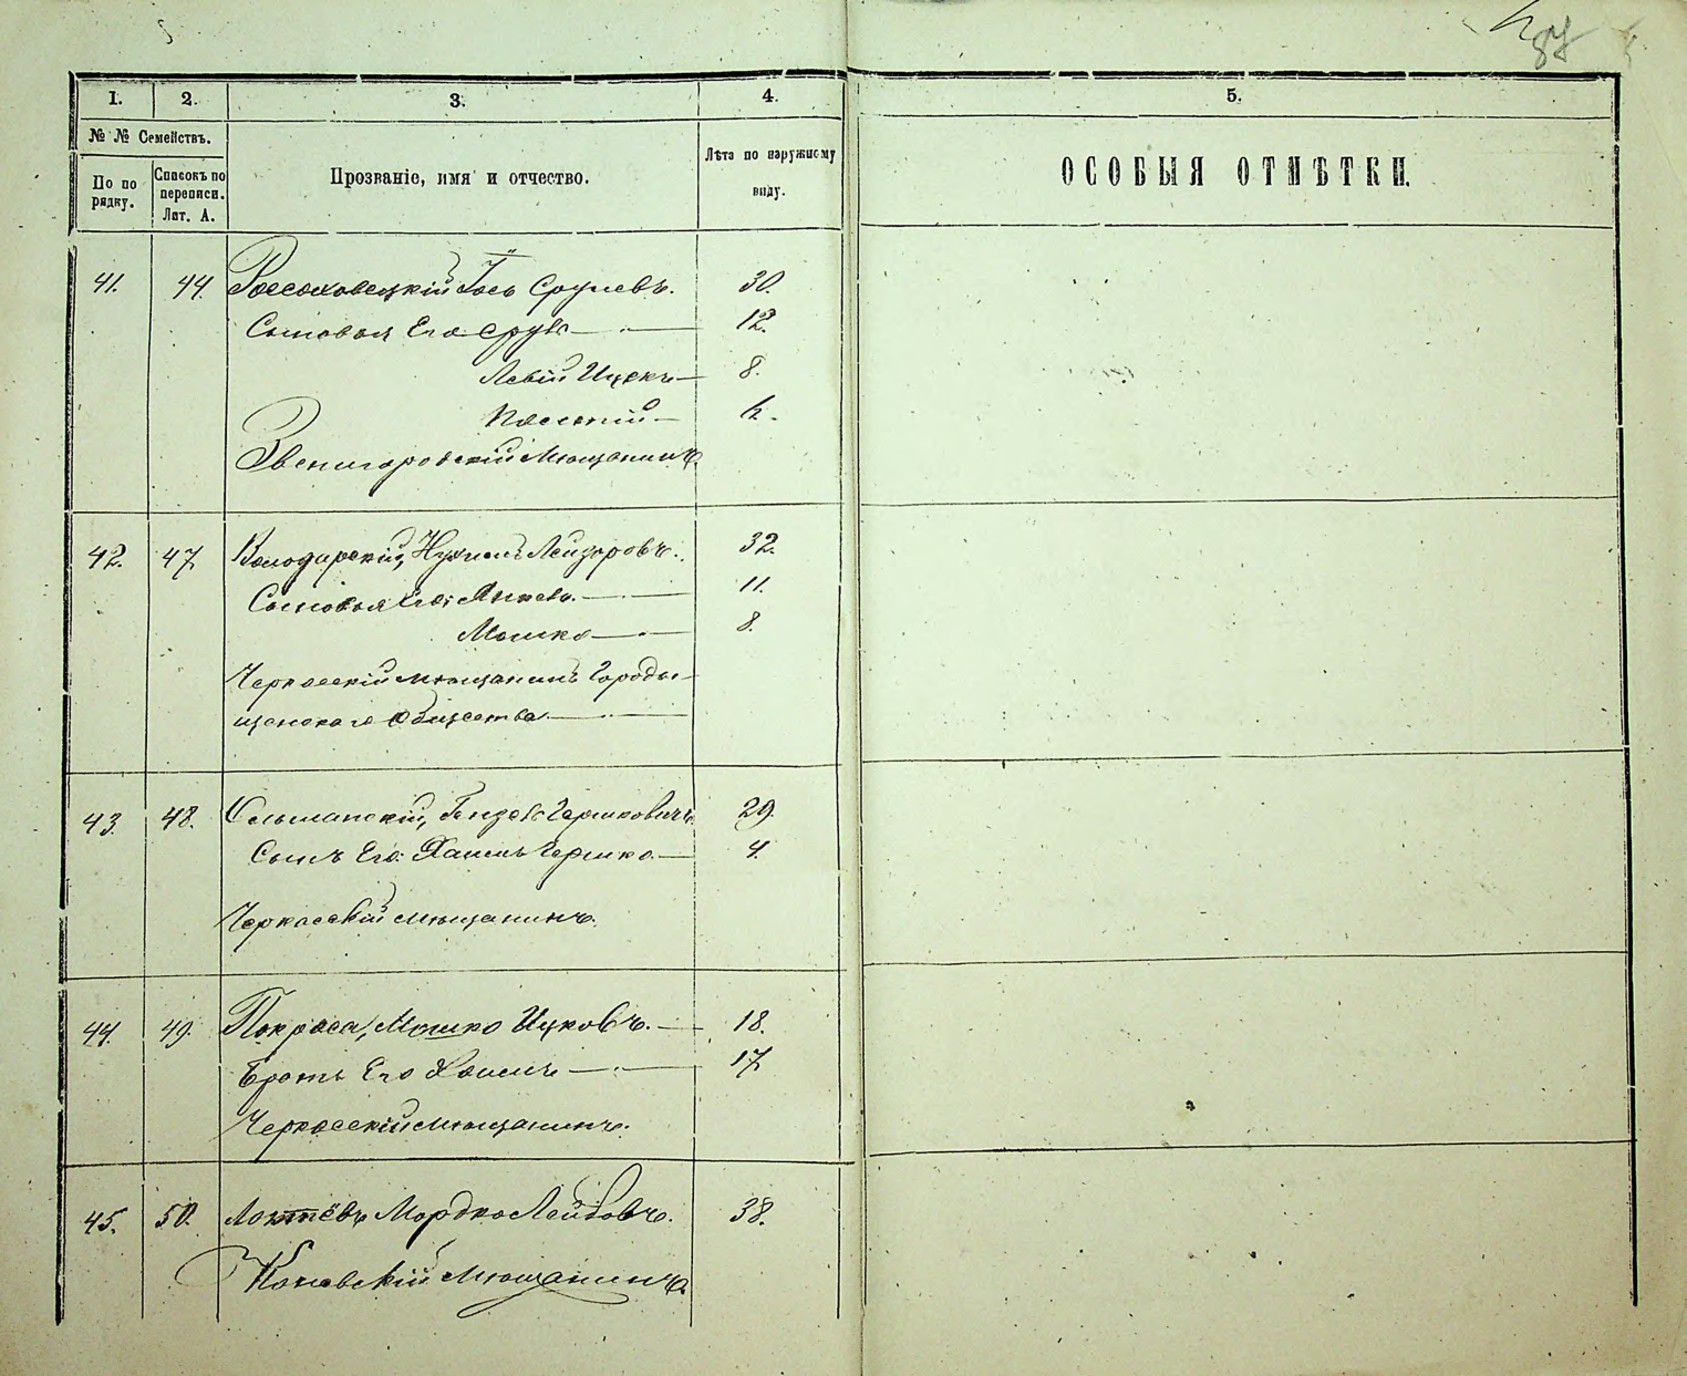 87
1. 2. 3. 4. 5.
№ № Семействъ.
По по
рядку.
Списокъ по
переписи.
Лит. А.
Прозваніе, имя и отчество.
Лѣта по наружному
виду.
ОСОБЫЯ ОТМѢТКИ.
41. 44. Россоховецкій Іось Срулевъ. 30.
Сыновья Его Сруль 12.
Левій Ицекъ 8.
Звенигородскій Мѣщанинъ.
42. 47 Володарскій, Нухимъ Лейзоровъ. 32.
Сыновья Его: Янкель. 11.
Мошко 8.
Черкасскій мѣщанинъ Городы-
щенскаго Общества
43. 48. Сельманскій, Гершковичъ 29.
Сынъ Его: Хаимъ Гершко. 4.
Черкасскій мѣщанинъ.
44. 49. Покраса, Мошко Ицковъ. 18.
Братъ Его Хаимъ 17
Черкасскій мѣщанинъ.
45. 50. Локтёвъ Мордко Лейбовъ. 38.
Каневскій Мѣщанинъ